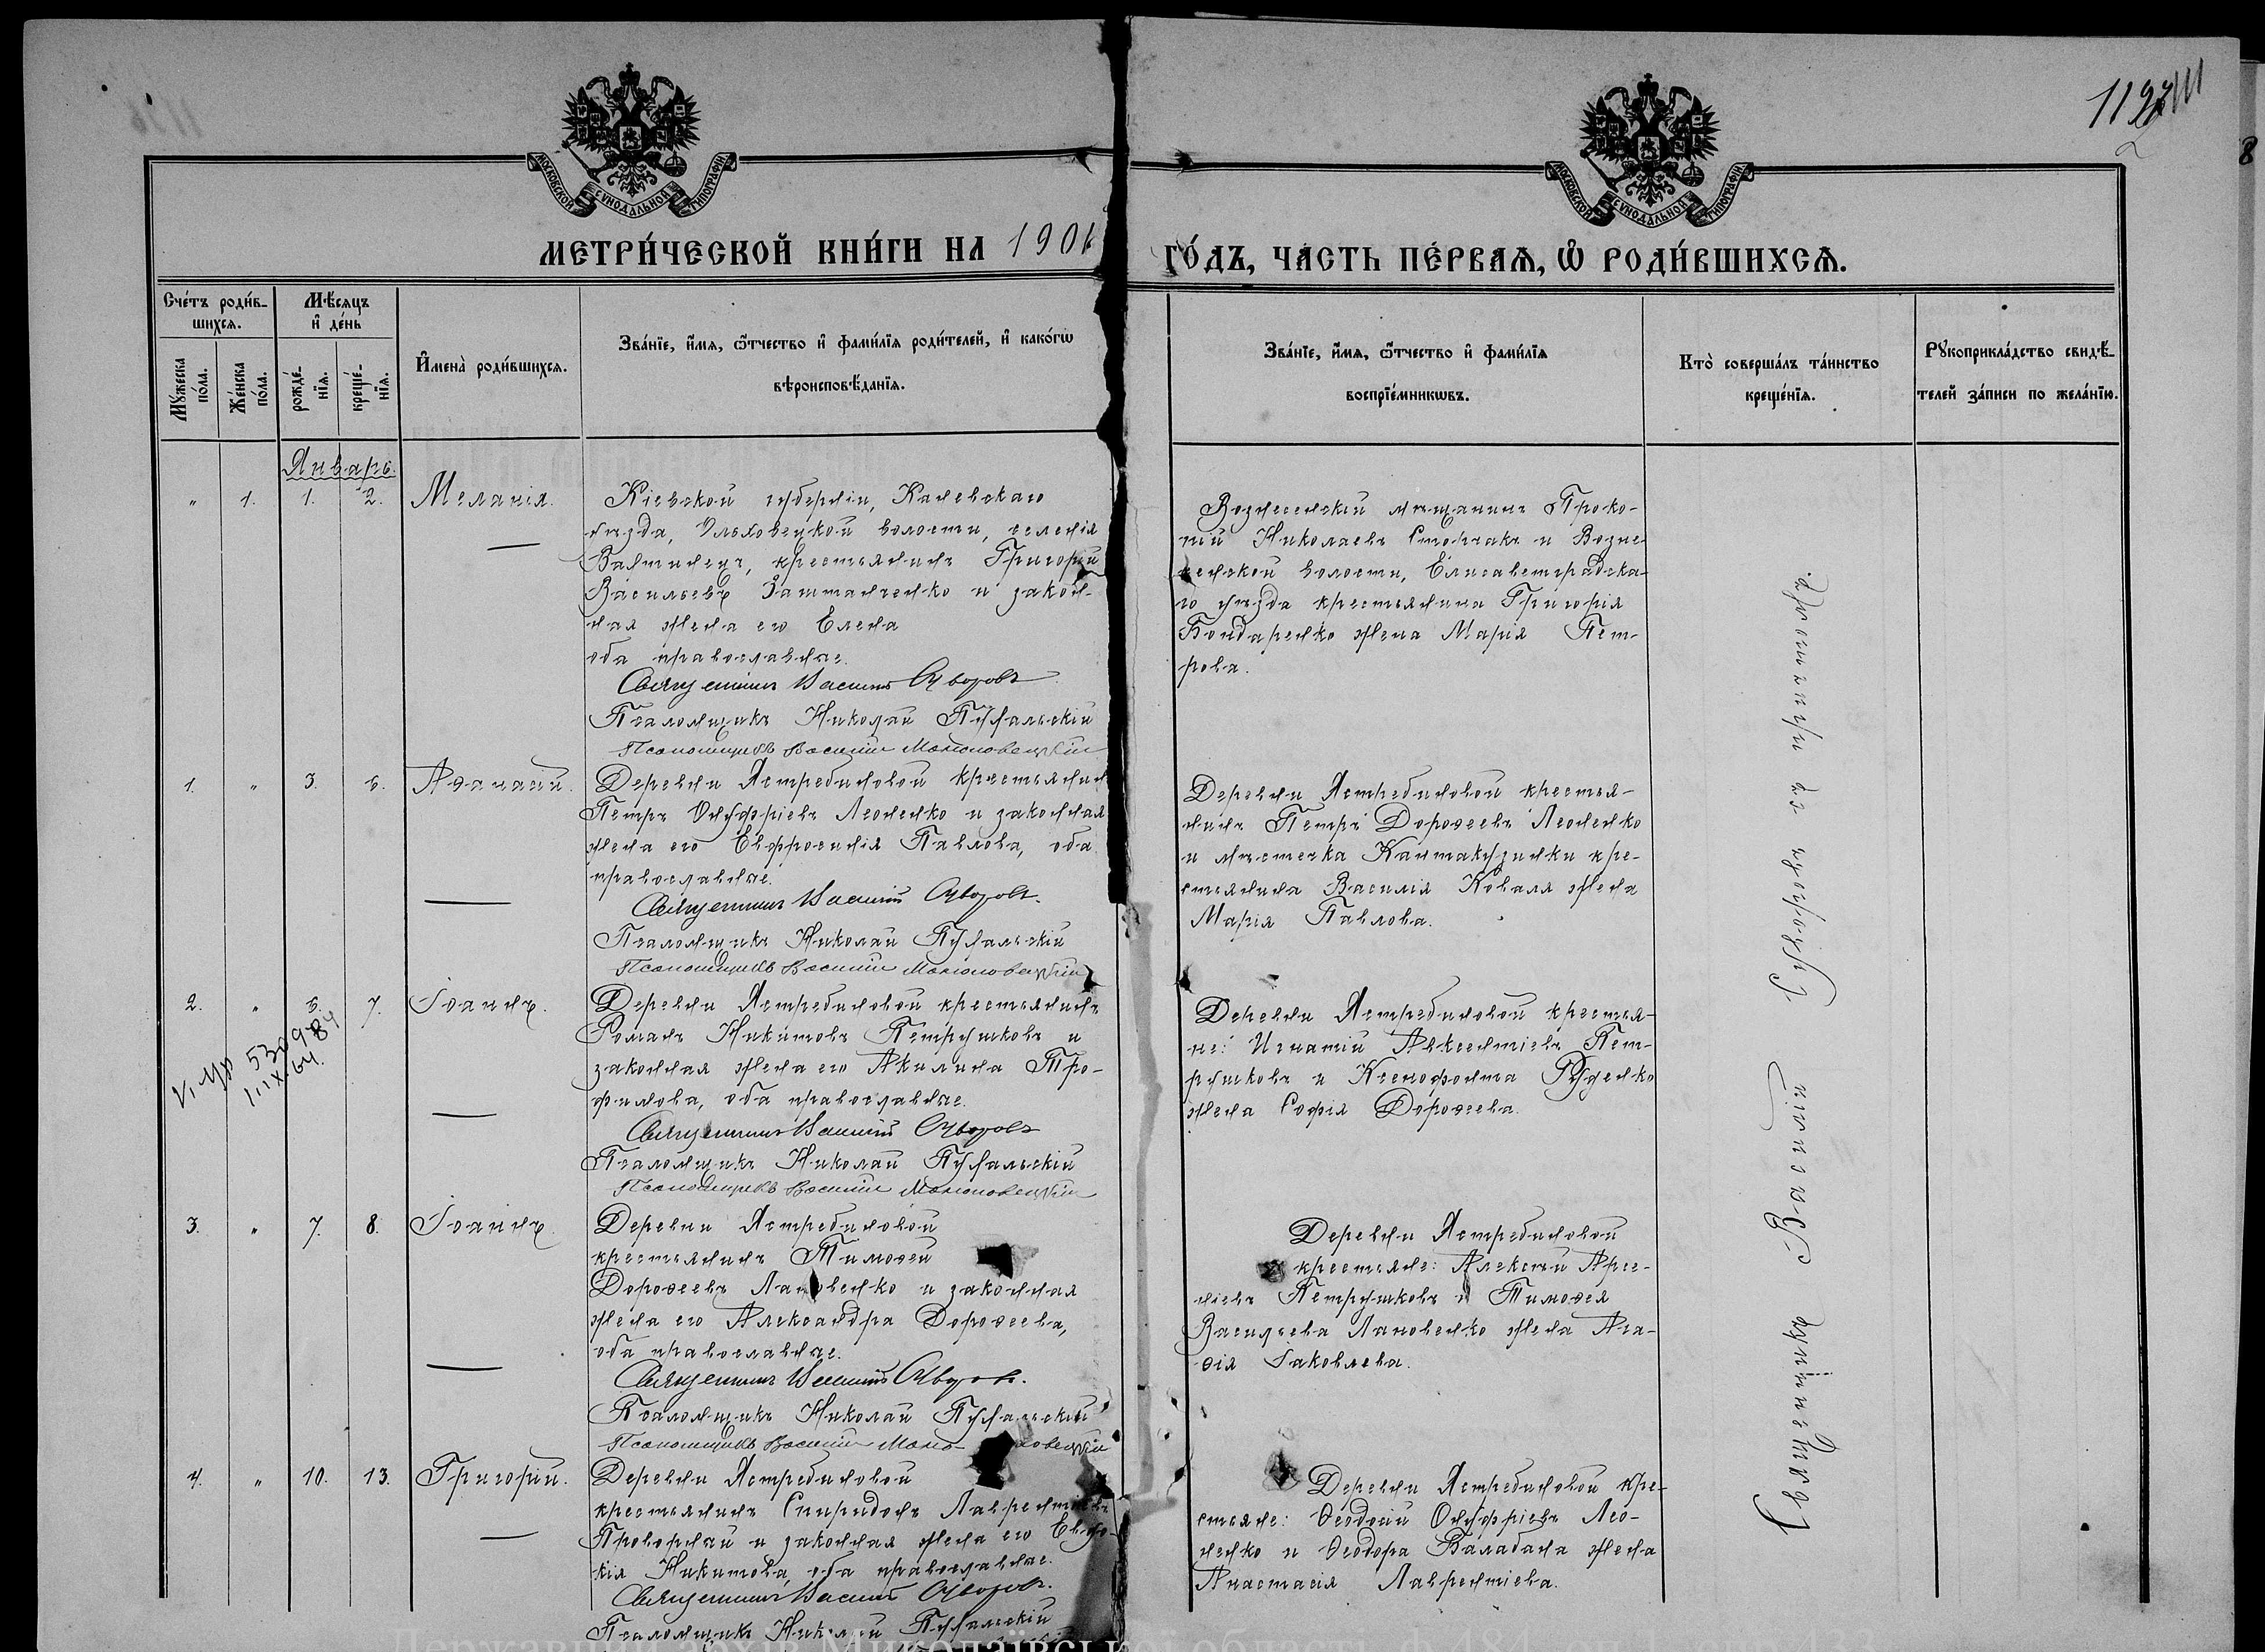 112
8
МОСКОВСКОЙ СѴНОДАЛЬНОЙ ТИПОГРАФІИ
МОСКОВСКОЙ СѴНОДАЛЬНОЙ ТИПОГРАФІИ
МЕТРИ́ЧЕСКОЙ КНИ́ГИ НА 1901
ГО́ДЪ, ЧА́СТЬ ПЕ́РВАѦ, Ѡ РОДИ́ВШИХСѦ.
Сче́тъ роди́в-
шихся.
Мѣ́сяцъ
и де́нь
Мꙋ́жеска
по́ла.
Же́нска
по́ла.
рожде́-
нїя.
креще́-
нїя.
Имена̀ роди́вшихся.
Зва́нїе, и́мя, ѻ́тчество и фами́лїя роди́телей, и како́гѡ
вѣроисповѣ́данїя.
Зва́нїе, и́мя, ѻ́тчество и фами́лїя
воспрїе́мникѡвъ.
Кто̀ соверша́лъ та́инство
креще́нїя.
Рꙋкоприкла́дство свидѣ́-
телей за́писи по жела́нїю.
Январь.
" 1. 1. 2. Меланія.
Кіевской губерніи, Каневскаго
уѣзда, Ольховецкой волости, селенія
крестьянинъ Григорій
Васильевъ и закон-
ная жена его Елена
оба православные.
Священникъ Василій
Псаломщикъ Николай
Псаломщикъ Василій
Вознесенскій мѣщанинъ Проко-
пій Николаевъ и Возне-
сенской волости, Елисаветградска-
го уѣзда крестьянина Григорія
Бондаренко жена Марія Пет-
рова.
1. " 3. 6. Аѳанасій.
Деревни Ястребиновой крестьянинъ
Петръ Онуфріевъ Леоненко и законная
жена его Евфросинія Павлова, оба
православные.
Священникъ Василій
Псаломщикъ Николай
Псаломщикъ Василій
Деревни Ястребиновой крестья-
нинъ Петръ Дороѳеевъ Леоненко
и мѣстечка Кантакузинки кре-
стьянина Василія Коваля жена
Марія Павлова.
2. " 7. Іоаннъ.
Деревни Ястребиновой крестьянинъ
Романъ Никитовъ Петрушковъ и
законная жена его Акилина Тро-
фимова, оба православные.
Священникъ Василій
Псаломщикъ Николай
Псаломщикъ Василій
Деревни Ястребиновой крестья-
не: Игнатій Авксентіевъ Пет-
рушковъ и Ксенофонта Руденко
жена Софія Дороѳеева.
3. " 7. 8. Іоаннъ.
Деревни Ястребиновой
крестьянинъ Тимоѳей
Дороѳеевъ Лановенко и законная
жена его Александра Дороѳеева,
оба православные.
Священникъ Василій
Псаломщикъ Николай
Псаломщикъ Василій
Деревни Ястребиновой
крестьяне: Алексѣй Арсе-
ніевъ Петрушковъ и Тимоѳея
Васильева Лановенко жена Ага-
ѳія Іаковлева.
4. " 10. 13. Григорій.
Деревни Ястребиновой
крестьянинъ Спиридонъ Лаврентіевъ
Проворный и законная жена его Евдо-
кія Никитова, оба православные.
Священникъ Василій
Псаломщикъ Николай
Деревни Ястребиновой кре-
стьяне: Ѳеодосій Онуфріевъ Лео-
ненко и Ѳеодора Балабана жена
Анастасія Лаврентіева.
Священникъ Василій съ причтомъ.